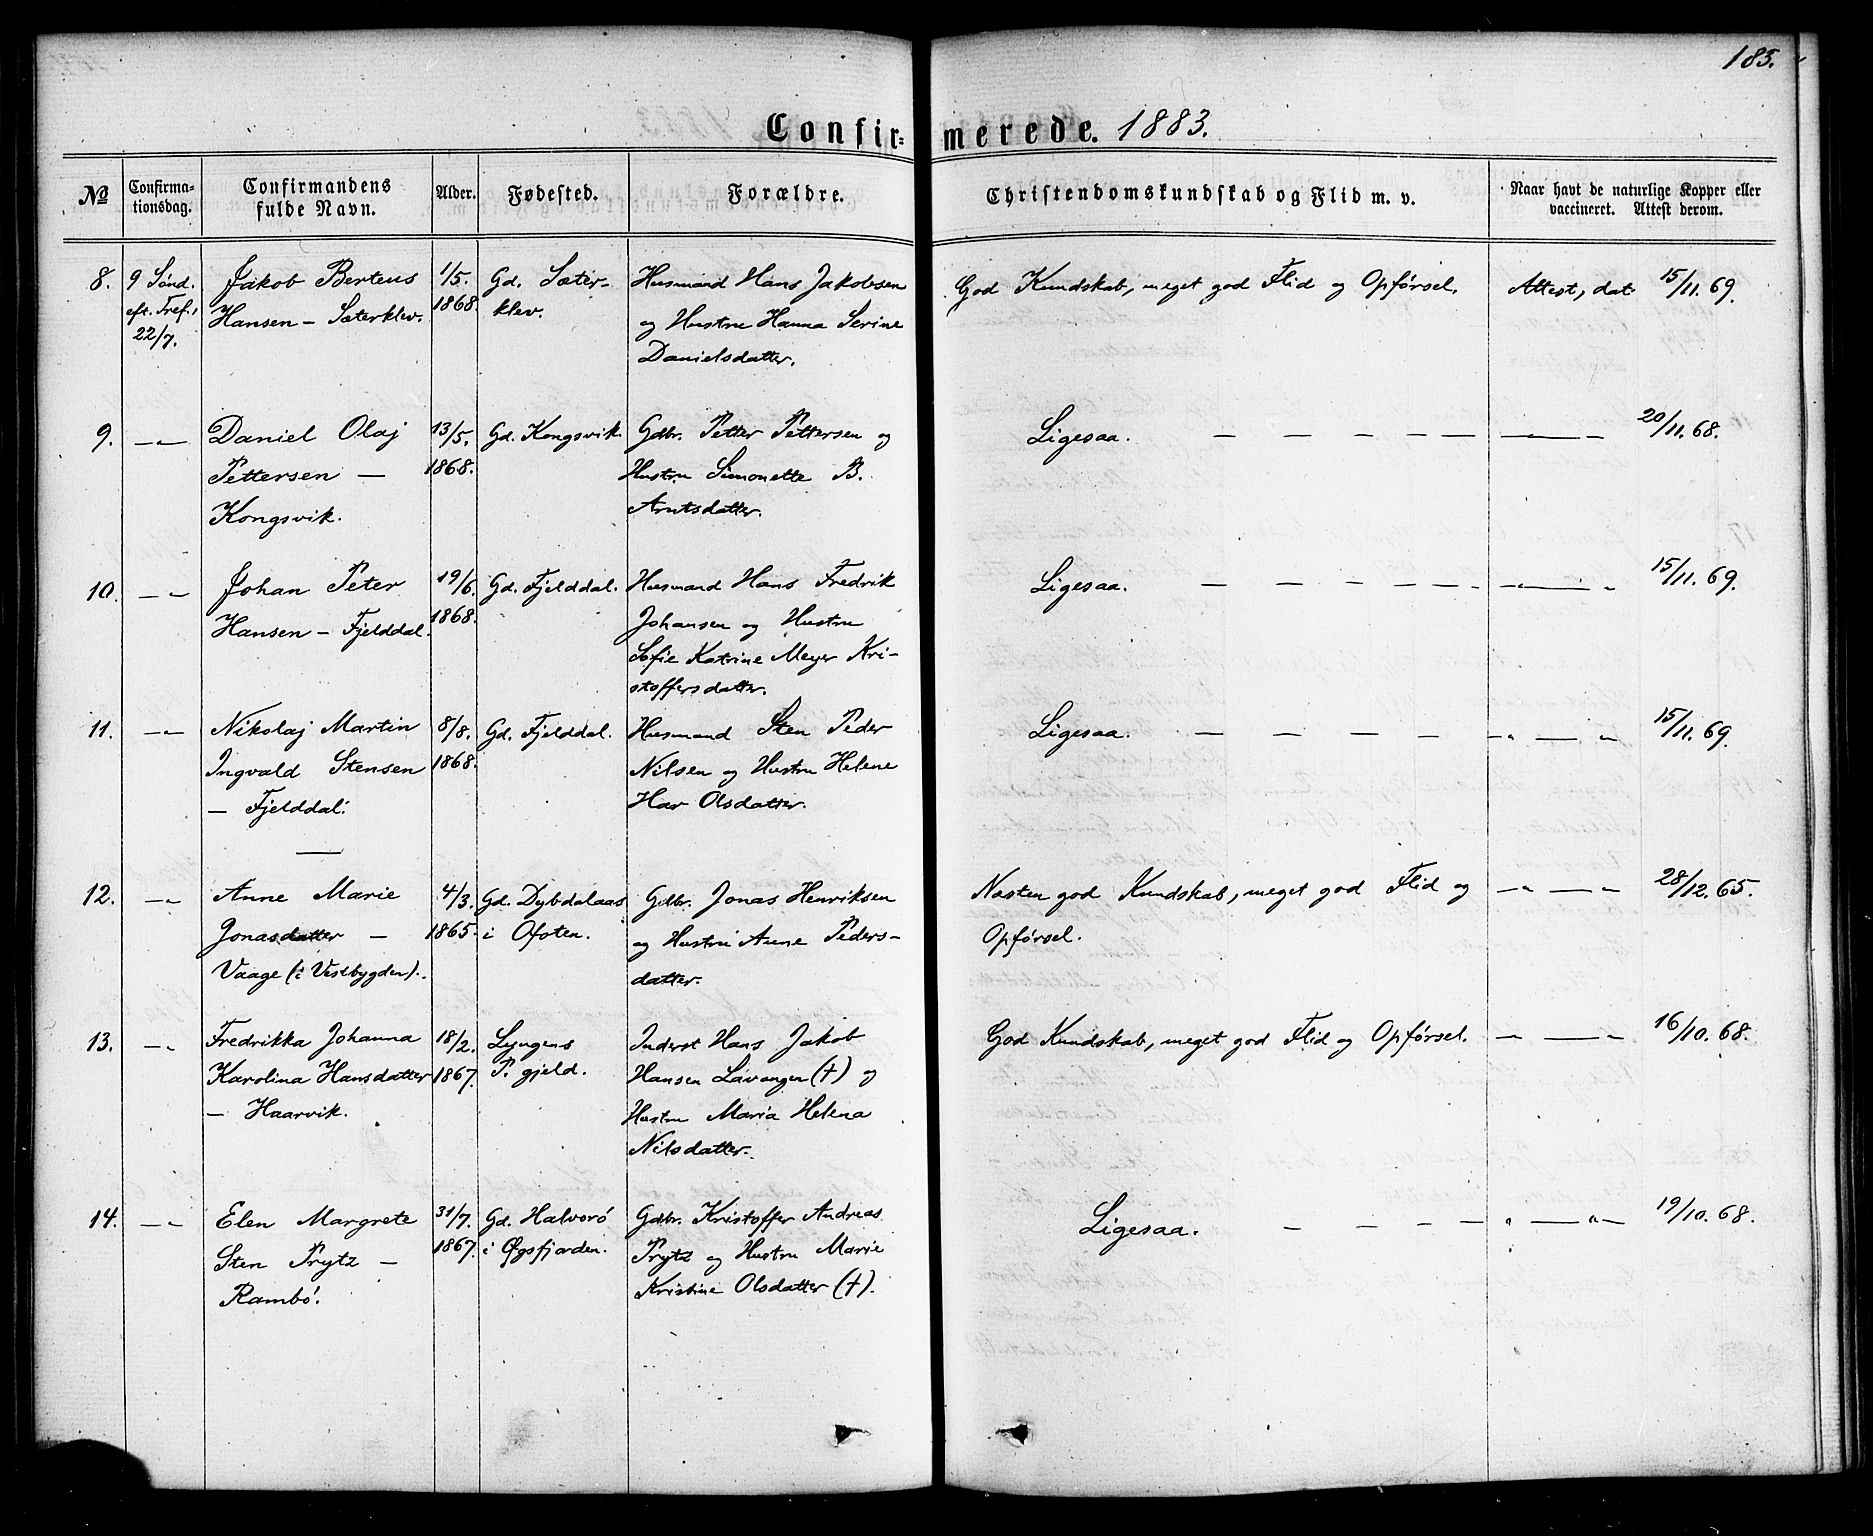 185.
Confir- merede. 1883.
No Confirmationsdag. Confirmandens fulde Navn. Alder. Fødested. Forældre. Christendomskundskab og Flid m. v. Naar havt de naturlige Kopper eller vaccineret. Attest derom.
8. 9 Sønd. Jakob Berteus 1/5. Gd. Sæter- Husmand Hans Jakobsen God Kundskab, meget god Flid og Opførsel. Attest, dat. 15/11. 69.
eft. Tref., Hansen – Sæterklev. 1868. klev. og Hustru Hanna Serine
22/7. Danielsdatter.
9. —„— Daniel Olaj 13/5. Gd. Kongsvik. Gdbr. Petter Pettersen og Ligesaa. — — — — — 20/11. 68.
Pettersen – 1868. Hustru Simonette B.
Kongsvik. Arntsdatter.
10. —„— Johan Peter 19/6. Gd. Fjelddal. Husmand Hans Fredrik Ligesaa. — — — — — „ — „ 15/11. 69.
Hansen – Fjelddal. 1868. Johansen og Hustru
Sofie Katrine Meyer Kri-
stoffersdatter.
11. —„— Nikolaj Martin 8/8. Gd. Fjelddal. Husmand Sten Peder Ligesaa. — — — — — „ — „ 15/11. 69.
Ingvald Stensen 1868. Nilsen og Hustru Helene
– Fjelddal. Har Olsdatter.
12. —„— Anne Marie 4/3. Gd. Dybdalaas Gdbr. Jonas Henriksen Næsten god Kundskab, meget god Flid og —„ — „— 28/12. 65.
Jonasdatter – 1865. i Ofoten. og Hustru Anne Peders- Opførsel.
Vaage (i Vestbygden). datter.
13. —„— Fredrikka Johanna 18/2. Lyngens Inderst Hans Jakob God Kundskab, meget god Flid og Opførsel. —„ — „— 16/10. 68.
Karolina Hansdatter 1867. P. gjeld. Hansen Lavangen (†) og
– Haarvik. Hustru Maria Helena
Nilsdatter.
14. —„— Elen Margrete 31/7. Gd. Halvorö Gdbr. Kristoffer Andreas Ligesaa. — — — — „ — „— 19/10. 68.
Sten Prytz – 1867. i Øgsfjorden. Prytz og Hustru Marie
Rambö. Kristine Olsdatter (†).